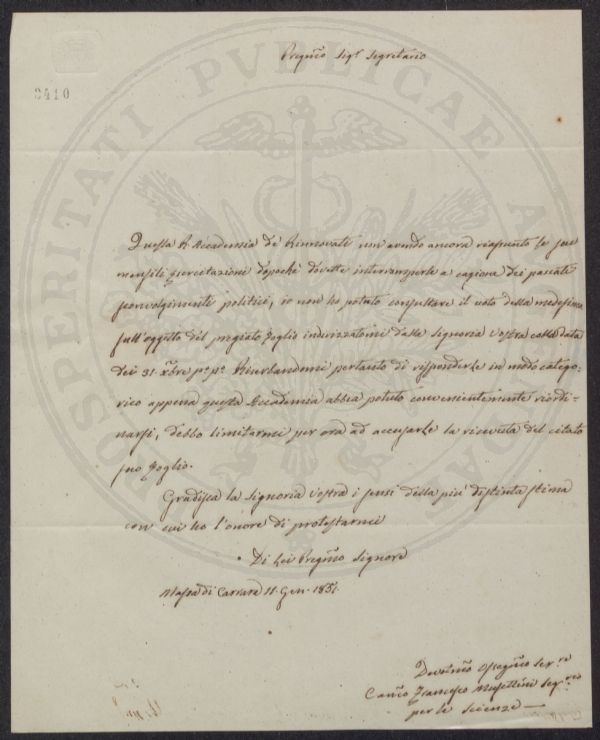 3410
Pregmo Sigr Segretario
Questa R. Accademia de' Rinnovati non avendo ancora riassunto le sue
mensili esercitazioni dopochè dovette interromperle a cagione dei passati
sconvolgimenti politici, io non ho potuto consultare il voto della medesima
sull'oggetto del pregiato foglio indirizzatomi dalla Signoria Vostra colla data
dei 31. Xbre po. po. Riserbandomi pertanto di risponderle in modo catego-
rico appena questa Accademia abbia potuto convenientemente riordi-
narsi, debbo limitarmi per ora ad accusarle la ricevuta del citato
suo foglio.
Gradisca la Signoria Vostra i sensi della più distinta stima
con cui ho l'onore di protestarmi
Di Lei Pregmo Signore
Massa di Carrara 11. Gen. 1851.
Devotmo Osseqmo Serre
Canco Francesco Musettini Segrio
per le Scienze
PROSPERITATI PUBLICAE AUGENDAE